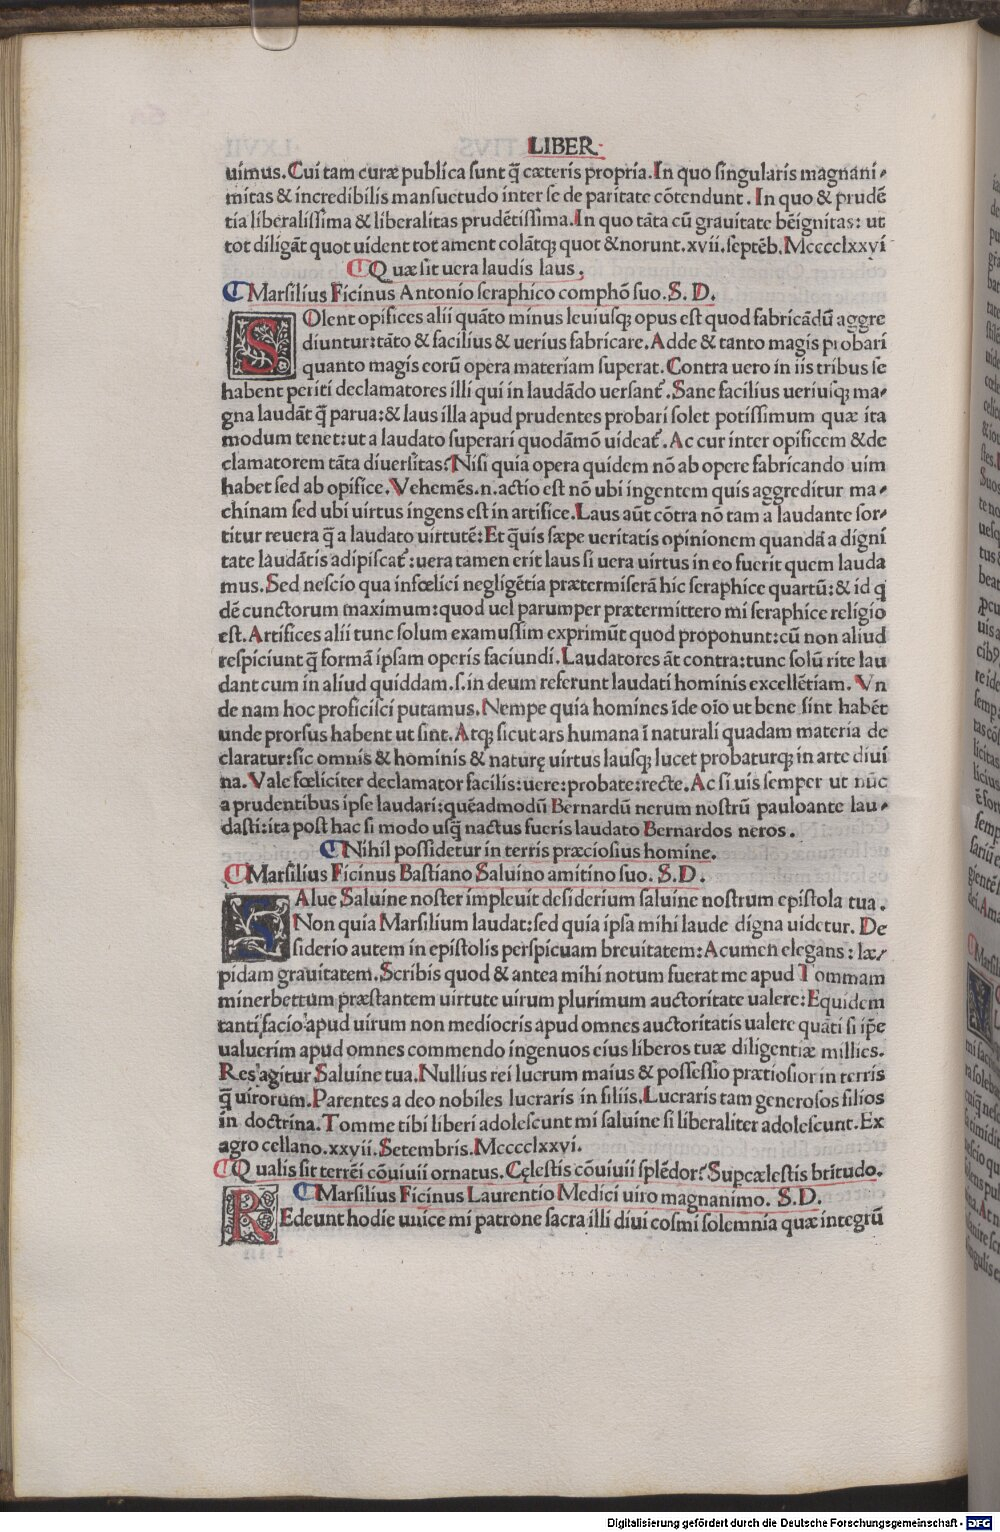 LIBER
uimus. Cui tam curæ publica sunt q̃ cæteris propria. In quo singularis magnani⸗
mitas & incredibilis mansuetudo inter se de paritate cõtendunt. In quo & prudẽ
tia liberalissima & liberalitas prudẽtissima. In quo tãta cũ grauitate bẽignitas: ut
tot diligãt quot uident tot ament colãtqꝫ quot & norunt. xvii. septẽb. Mcccclxxvi
Quæ sit uera laudis laus.
Marsilius Ficinus Antonio seraphico comphõ suo. S. D.
SOlent opifices alii quãto minus leuiusqꝫ opus est quod fabricãdũ aggre
diuntur: tãto & facilius & uerius fabricare. Adde & tanto magis probari
quanto magis eorũ opera materiam superat. Contra uero in iis tribus se
habent periti declamatores illi qui in laudãdo uersant᷑. Sane facilius ueriusqꝫ ma⸗
gna laudãt q̃ parua: & laus illa apud prudentes probari solet potissimum quæ ita
modum tenet: ut a laudato superari quodãmõ uideat᷑. Ac cur inter opificem & de
clamatorem tãta diuersitas? Nisi quia opera quidem nõ ab opere fabricando uim
habet sed ab opifice. Vehemẽs .n. actio est nõ ubi ingentem quis aggreditur ma⸗
chinam sed ubi uirtus ingens est in artifice. Laus aũt cõtra nõ tam a laudante sor⸗
titur reuera q̃ a laudato uirtutẽ: Et q̃uis sæpe ueritatis opinionem quandã a digni
tate laudãtis adipiscat᷑: uera tamen erit laus si uera uirtus in eo fuerit quem lauda
mus. Sed nescio qua infœlici negligẽtia prætermiserã hic seraphice quartũ: & id q
dẽ cunctorum maximum: quod uel parumper prætermittero mi seraphice religio
est. Artifices alii tunc solum examussim exprimũt quod proponunt: cũ non aliud
respiciunt q̃ formã ipsam operis faciundi. Laudatores ãt contra: tunc solũ rite lau
dant cum in aliud quiddam .s. in deum referunt laudati hominis excellẽtiam. Vn
de nam hoc proficisci putamus. Nempe quia homines ĩde oĩo ut bene sint habẽt
unde prorsus habent ut sint. Atqꝫ sicut ars humana ĩ naturali quadam materia de
claratur: sic omnis & hominis & naturę uirtus lausqꝫ lucet probaturqꝫ in arte diui
na. Vale fœliciter declamator facilis: uere: probate: recte. Ac si uis semper ut nũc
a prudentibus ipse laudari: quẽadmodũ Bernardũ nerum nostrũ pauloante lau⸗
dasti: ita post hac si modo usq̃ nactus fueris laudato Bernardos neros.
Nihil possidetur in terris præciosius homine.
Marsilius Ficinus Bastiano Saluino amitino suo. S. D.
SAlue Saluine noster impleuit desiderium saluine nostrum epistola tua.
Non quia Marsilium laudat: sed quia ipsa mihi laude digna uidetur. De
siderio autem in epistolis perspicuam breuitatem: Acumen elegans: læ⸗
pidam grauitatem. Scribis quod & antea mihi notum fuerat me apud Tommam
minerbettum præstantem uirtute uirum plurimum auctoritate ualere: Equidem
tanti facio apud uirum non mediocris apud omnes auctoritatis ualere quãti si ip̃e
ualuerim apud omnes commendo ingenuos eius liberos tuæ diligentiæ millies.
Res agitur Saluine tua. Nullius rei lucrum maius & possessio prætiosior in terris
q̃ uirorum. Parentes a deo nobiles lucraris in filiis. Lucraris tam generosos filios
in doctrina. Tomme tibi liberi adolescunt mi saluine si liberaliter adolescunt. Ex
agro cellano. xxvii. Setembris. Mcccclxxvi.
Qualis sit terrẽi cõuiuii ornatus. Cęlestis cõuiuii splẽdor? Supcælestis btitudo.
Marsilius Ficinus Laurentio Medici uiro magnanimo. S. D.
REdeunt hodie unice mi patrone sacra illi diui cosmi solemnia quæ integrũ
Digitalisierung gefördert durch die Deutsche Forschungsgemeinschaft - DFG